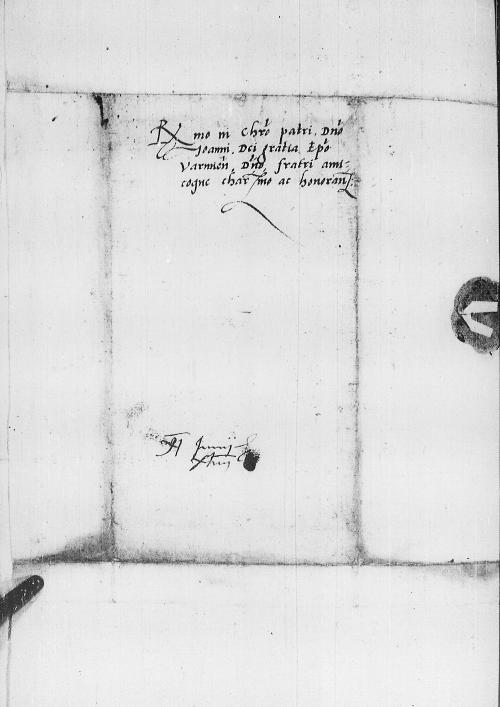 Rx mo in Chro patri. Dno
Joanni. Dei gratia Epo
Varmien. Dno fratri ami-
coque char mo ac honoran.
Junij